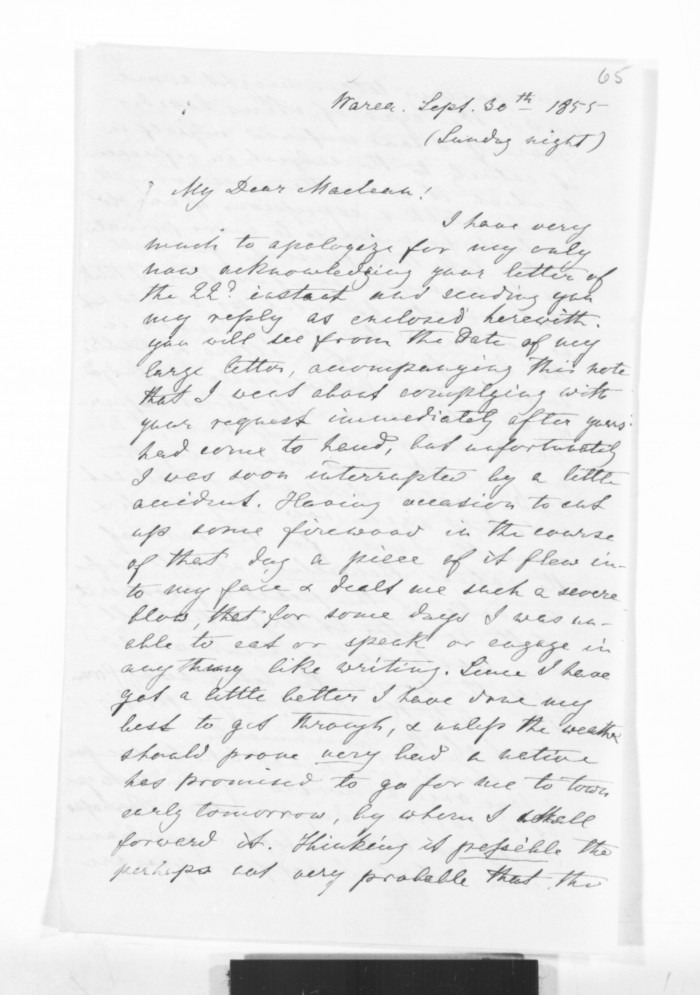 65
Warea. Sept. 30th 1855
(Sunday night)
My Dear Maclean!
I have very
much to apologize for my only
now acknowledging your letter of
the 22d instant and sending you
my reply as enclosed herewith.
you will see from the Date of my
large letter, accompanying this note
that I went about complying with
your request immediately after yours
had come to hand, but unfortunately
I was soon interrupted by a little
accident. Having occasion to cut
up some firewood in the course
of that day a piece of it flew in-
to my face & dealt me such a severe
blow, that for some days I was un-
able to eat or speak or engage in
anything like writing. Since I have
got a little better I have done my
best to get through, & unless the weather
should prove very bad a native
has promised to go for me to town
early tomorrow, by whom I shall
forward it. Thinking it possible tho
perhaps not very probable that the